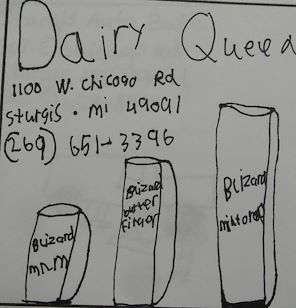 Dairy Queen
1100 W. Chicago Rd
Sturgis . mi 49091
(269) 651-3396
Blizard
mnm
Blizard
butter
Finger
Blizard